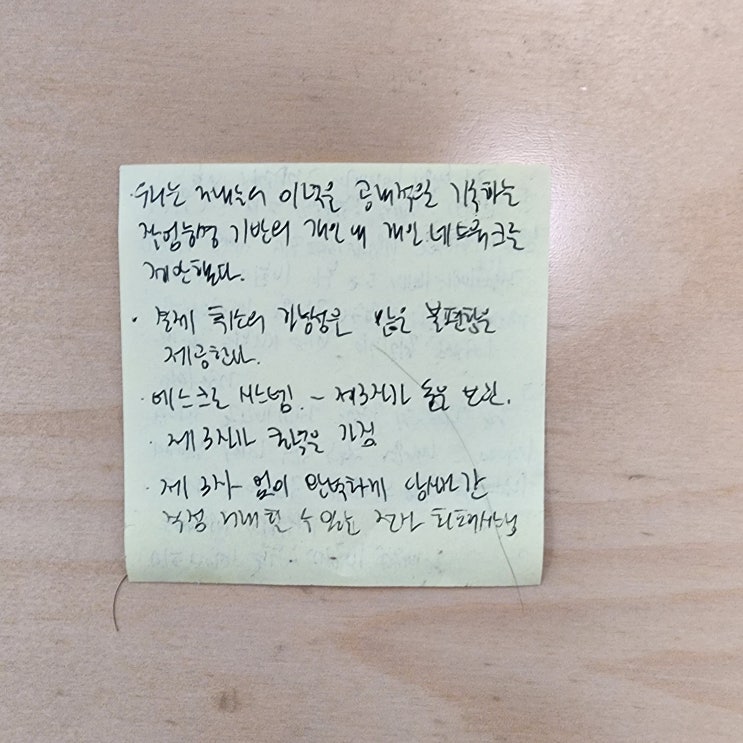 · 우리는 거래의 이력을 공개적으로 기록하는
작업증명 기반의 개인 대 개인 네트워크를
제안했다.
· 결제 취소의 가능성은 많은 불편함을
제공한다.
· 에스크로 시스템 - 제3자가 돈을 보관.
· 제3자가 권력을 가짐
· 제 3자 없이 완벽하게 상대간
직접 거래할 수 있는 전자 화폐시스템